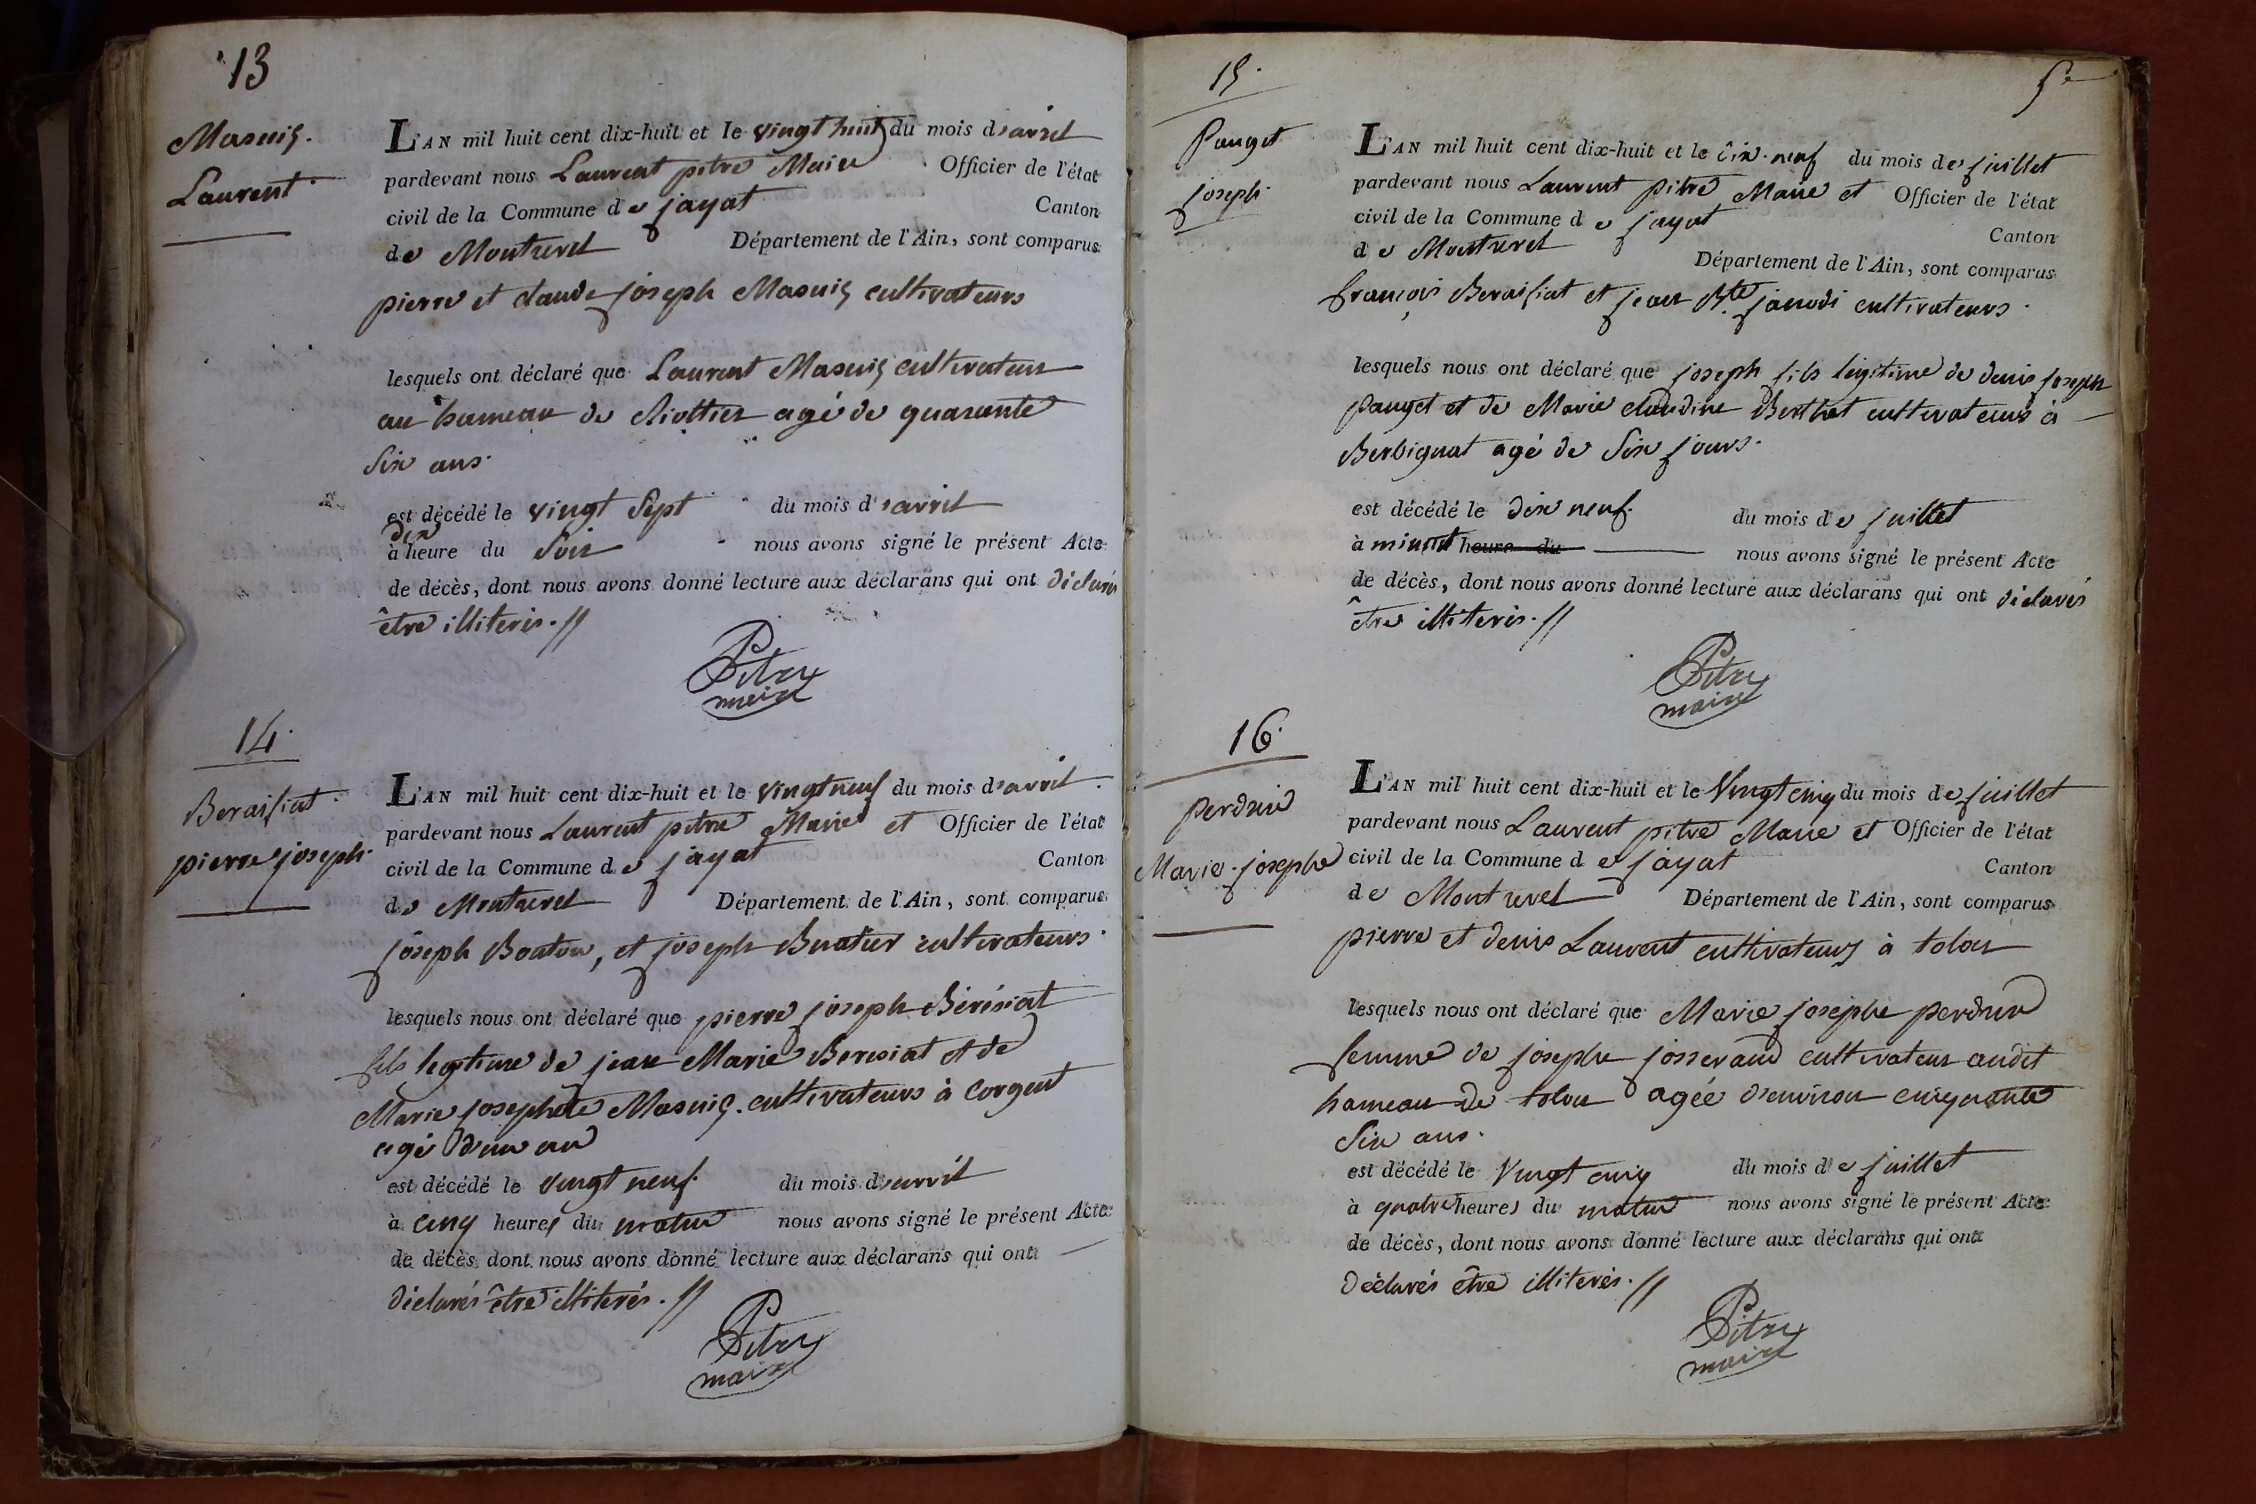 13
Masuiş.
Laurent.
L'AN mil huit cent dix-huit et le vingt huit du mois d'avril
pardevant nous Laurent pitre Maire Officier de l'état
civil de la Commune de jayat Canton
de Montrevel Département de l'Ain, sont comparus
pierre et claude joseph Masuiş cultivateurs
lesquels ont déclaré que Laurent Masuiş cultivateur
au hameau de Riottier agé de quarante
Six ans.
est décédé le vingt Sept du mois d'avril
dix
à heure du Soir nous avons signé le présent Acte
de décès, dont nous avons donné lecture aux déclarans qui ont déclarés
être illiterés.//
Pitre
maire
14.
Beraisiat.
pierre joseph.
L'AN mil huit cent dix-huit et le vingt neuf du mois d'avril.
pardevant nous Laurent pitre Maire et Officier de l'état
civil de la Commune de jayat Canton
de Montrevel Département de l'Ain, sont comparus
joseph Bouton, et joseph Buatier cultivateurs.
lesquels nous ont déclaré que pierre joseph Bérésiat
fils legitime de jean Marie Beresiat et de
Marie josephete Masuiş. cultivateurs à Corgent
agé d'un an
est décédé le vingt neuf. du mois d'avril
à cinq heures du matin nous avons signé le présent Acte
de décès dont nous avons donné lecture aux déclarans qui ont
déclarés être illiterés.//
Pitre
maire
15.
5e
Pauget
joseph.
L'AN mil huit cent dix-huit et le dix-neuf du mois de juillet
pardevant nous Laurent pitre Maire et Officier de l'état
civil de la Commune de jayat Canton
de Montrevel Département de l'Ain, sont comparus
françois Beraisiat et jean Bte. janodi cultivateurs.
lesquels nous ont déclaré que joseph fils légitime de denis joseph
pauget et de Marie claudine Berthet cultivateurs à
Berbignat agé de Six jours.
est décédé le dix neuf. du mois de juillet
à minuit heure du nous avons signé le présent Acte
de décès, dont nous avons donné lecture aux déclarans qui ont déclarés
être illiterés.//
Pitre
maire
16.
perdrix
Marie-josephe
L'AN mil huit cent dix-huit et le Vingt cinq du mois de juillet
pardevant nous Laurent pitre Maire et Officier de l'état
civil de la Commune de jayat Canton
de Montrevel Département de l'Ain, sont comparus
pierre et denis Laurent cultivateurs à tolou
lesquels nous ont déclaré que Marie josephe perdrix
femme de joseph josserand cultivateur audit
hameau de tolou agée d'environ cinquante
Six ans.
est décédé le Vingt cinq du mois de juillet
à quatre heures du matin nous avons signé le présent Acte
de décès, dont nous avons donné lecture aux déclarans qui ont
déclarés être illiterés.//
Pitre
maire